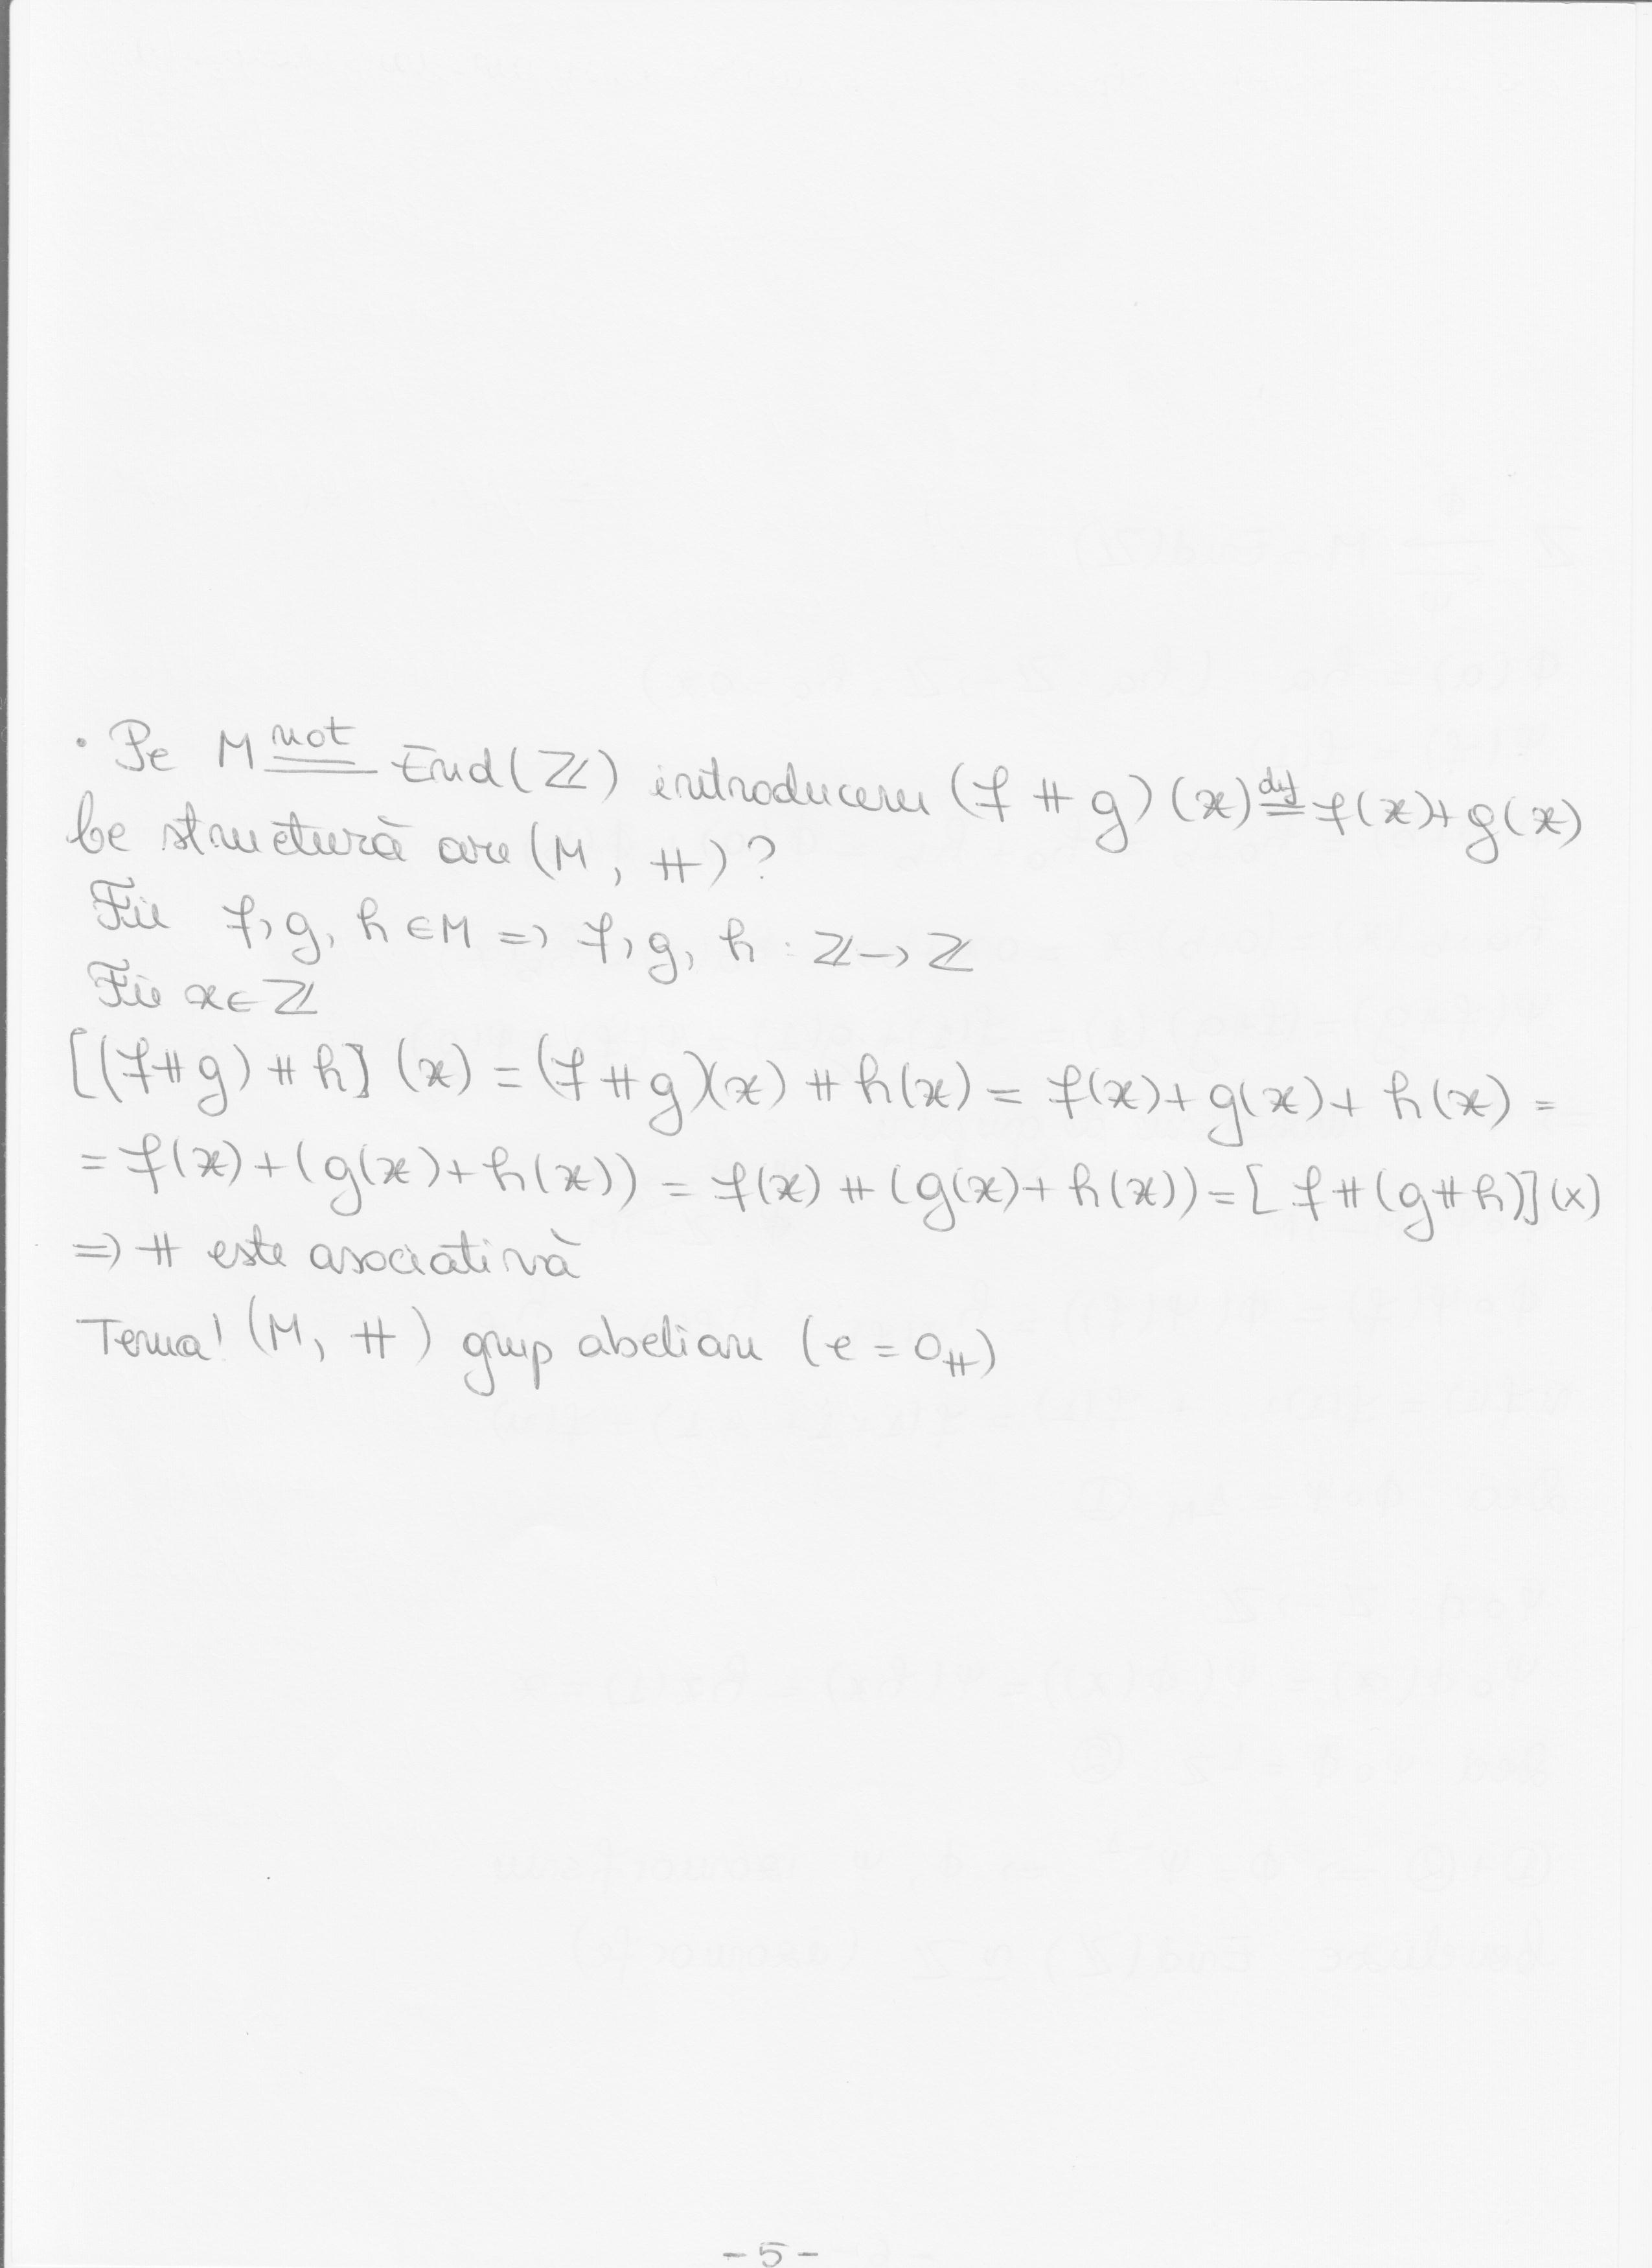 · Pe M not= End(ℤ) introducem (f # g)(x) def= f(x)+g(x)
Ce structură are (M, #)?
Fie f, g, h ∈ M => f, g, h : ℤ → ℤ
Fie x ∈ ℤ
[(f # g) # h] (x) = (f # g)(x) # h(x) = f(x) + g(x) + h(x) =
= f(x) + (g(x) + h(x)) = f(x) # (g(x) + h(x)) = [f # (g # h)](x)
=> # este asociativă
Tema! (M, #) grup abelian (e = 0#)
- 5 -